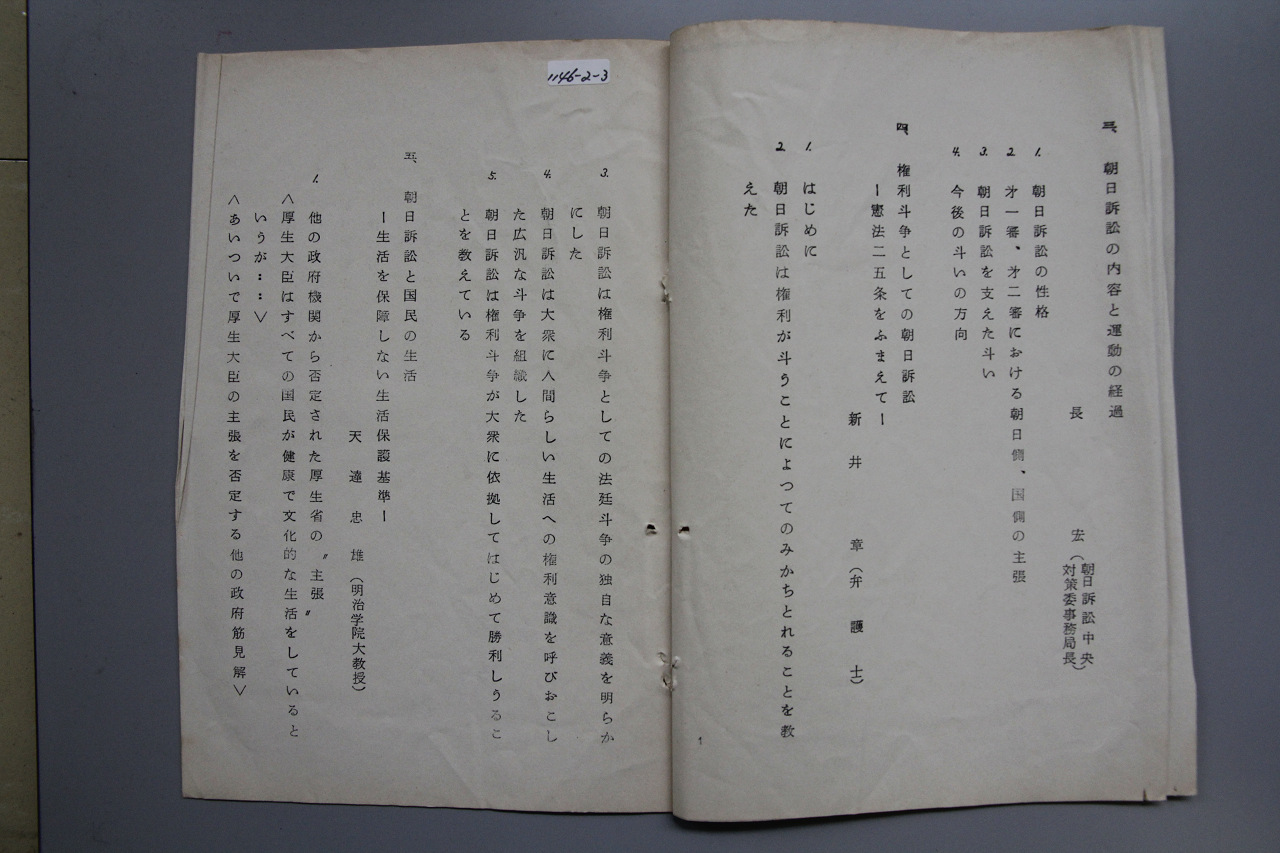 三、朝日訴訟の内容と運動の経過
長　宏（朝日訴訟中央対策委事務局長）
1. 朝日訴訟の性格
2. 才一審、才二審における朝日側、国側の主張
3. 朝日訴訟を支えた斗い
4. 今後の斗いの方向
四、権利斗争としての朝日訴訟
ー憲法二五条をふまえてー
新井　章（弁護士）
1. はじめに
2. 朝日訴訟は権利が斗うことによつてのみかちとれることを教
えた
1
1146-2-3
3. 朝日訴訟は権利斗争としての法廷斗争の独自な意義を明らか
にした
4. 朝日訴訟は大衆に人間らしい生活への権利意識を呼びおこし
た広汎な斗争を組織した
5. 朝日訴訟は権利斗争が大衆に依拠してはじめて勝利しうるこ
とを教えている
五、朝日訴訟と国民の生活
ー生活を保障しない生活保護基準ー
天達忠雄（明治学院大教授）
1. 他の政府機関から否定された厚生省の〝主張〟
＜厚生大臣はすべての国民が健康で文化的な生活をしていると
いうが‥‥＞
＜あいついで厚生大臣の主張を否定する他の政府筋見解＞